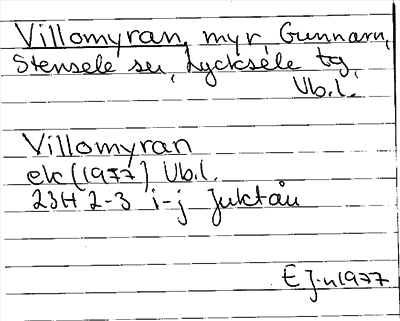 Villomyran, myr, Gunnarn,
Stensele sn, Lycksele tg,
Vb.l.
Villomyran
ek (1977) Vb.l.
23H 2-3 i-j Juktån
E J-n 1977